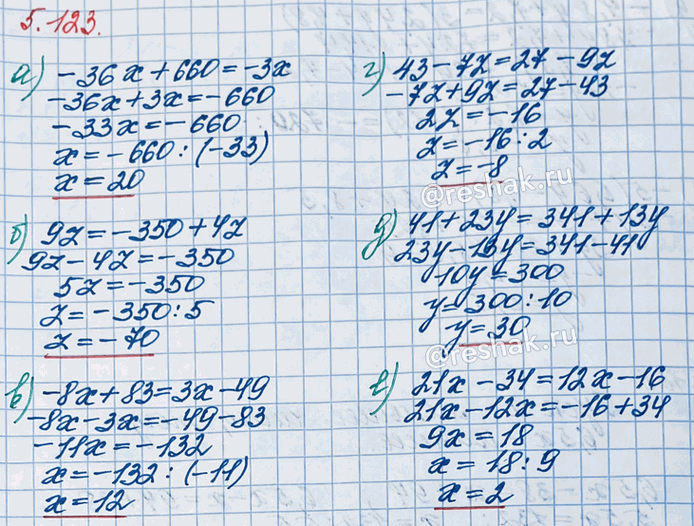 5.123.
а) -36x + 660 = -3x
-36x + 3x = -660
-33x = -660
x = -660 : (-33)
x = 20
б) 9z = -350 + 4z
9z - 4z = -350
5z = -350
z = -350 : 5
z = -70
в) -8x + 83 = 3x - 49
-8x - 3x = -49 - 83
-11x = -132
x = -132 : (-11)
x = 12
г) 43 - 7z = 27 - 9z
-7z + 9z = 27 - 43
2z = -16
z = -16 : 2
z = -8
©reshak.ru
д) 41 + 23y = 341 + 13y
23y - 13y = 341 - 41
10y = 300
y = 300 : 10
y = 30
©reshak.ru
е) 21x - 34 = 12x - 16
21x - 12x = -16 + 34
9x = 18
x = 18 : 9
x = 2